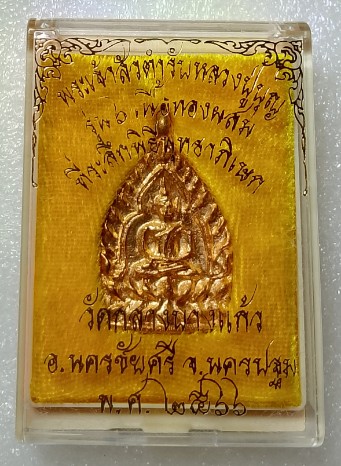 พระเจ้าสัวตำรับหลวงปู่บุญ
รุ่น ๖ เนื้อทองผสม
ที่ระลึกพิธีพุทธาภิเษก
วัดกลางบางแก้ว
อ.นครชัยศรี จ.นครปฐม
พ.ศ. ๒๕๖๖